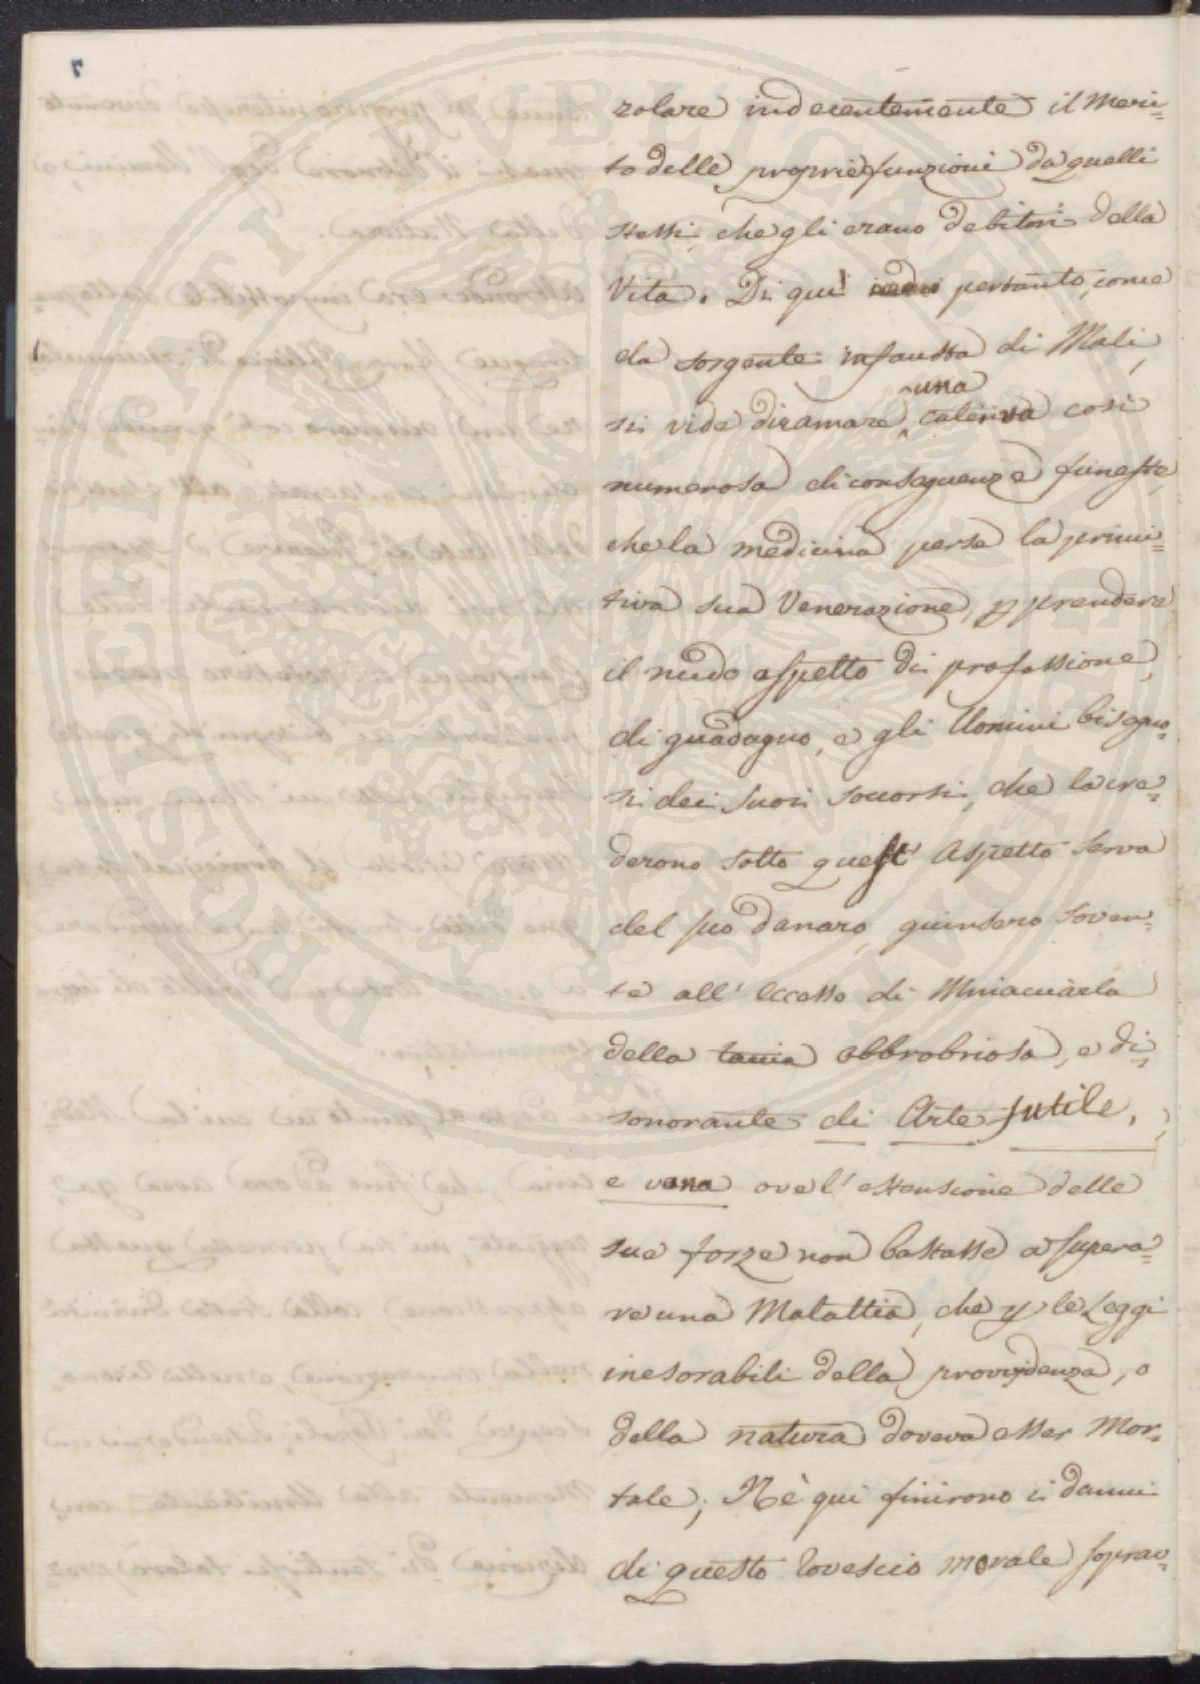 zolare indecentemente il Meri=
to delle proprie funzioni da quelli
stessi, che gli erano debitori della
Vita. Di qui pertanto, come
da sorgente infausta di Mali,
si vide diramare una catena così
numerosa di conseguenze funeste,
che la medicina perse la primi=
tiva sua Venerazione, p prendere
il nudo aspetto di professione,
di guadagno, e gli Uomini bisogno=
si dei suoi soccorsi, che la cre=
derono sotto quest' Aspetto serva
del suo danaro, giunsero soven=
te all' eccesso di
della taccia obbrobriosa, e di=
sonorante di Arte futile,
e vana ove l' estensione delle
sue forze non bastasse a supera=
re una Malattia, che p le Leggi
inesorabili della provvidenza, o
della natura doveva esser Mor=
tale; Nè qui finirono i danni
di questo rovescio morale soprav=